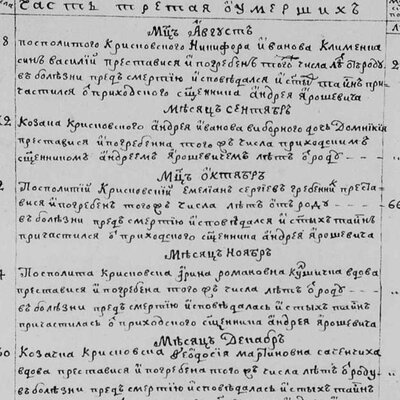 часть третая оумершихъ
Мцъ Августъ
8 посполитого Крисновского Никифора Иванова Клименка 2
синъ василий преставися и погребенъ того числа лѣтъ ѿ роду
въ болѣзни предъ смертию исповѣдался и стыхъ таинъ при
частился ѿ приходского сщенника андрея Ярошевича
Мѣсяцъ Сентяврь
Козака Крисновского андрея иванова виборного дочь Домникия
преставися и погребенна того ж числа приходскимъ
сщенникомъ андреемъ Ярошевичемъ лѣтъ ѿ роду
Мцъ Октяврь
2 Посполитий Крисновский Емелианъ сергиевъ гребенникъ преста-
вися и погребенъ того ж числа лѣтъ ѿ роду 66
въ болѣзни предъ смертию исповѣдался и стыхъ таинъ
причастился ѿ приходского сщенника андрея Ярошевича
Мѣсяцъ Ноябрь
Посполита Крисновска Ирина романовна вдова
преставися и погребена того ж числа лѣтъ ѿ роду
въ болѣзни предъ смертию исповѣдалась и стыхъ таинъ
причастилась ѿ приходского сщенника андрея Ярошевича
Мѣсяцъ Декабрь
Козачка Крисновска Феодосия мартиновна
вдова преставися и погребена того ж числа лѣтъ ѿ роду
въ болѣзни предъ смертию исповѣдалась и стыхъ таинъ